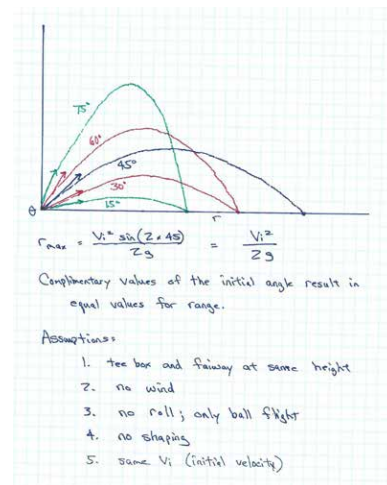 75°
60°
45°
30°
15°
θ
r
r max = Vi² sin(2×45) / 2g = Vi² / 2g
Complimentary values of the initial angle result in
equal values for range.
Assumptions:
1. tee box and faiway at same height
2. no wind
3. no roll; only ball flight
4. no shaping
5. same Vi (initial velocity)